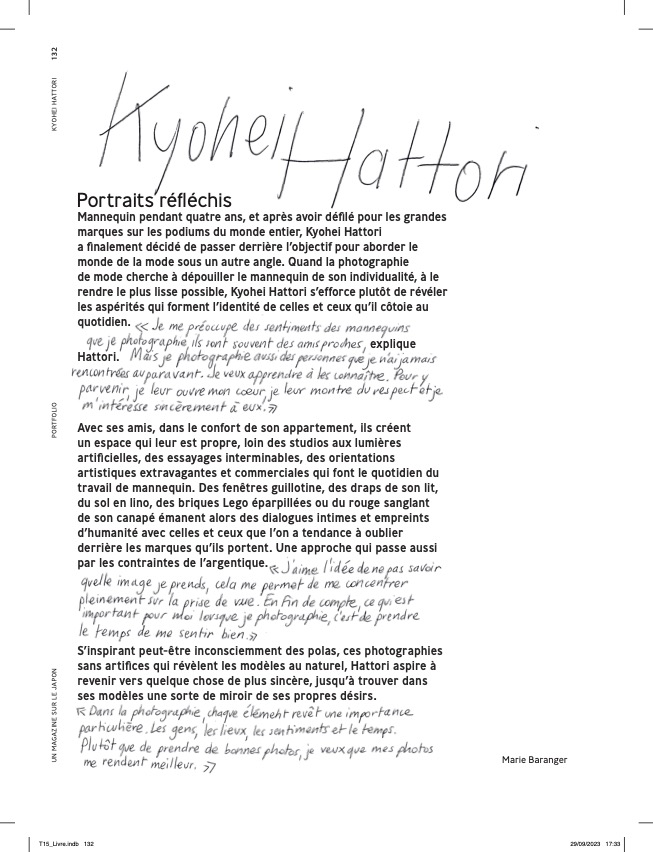 132
KYOHEI HATTORI
Kyohei Hattori
Portraits réfléchis
Mannequin pendant quatre ans, et après avoir défilé pour les grandes
marques sur les podiums du monde entier, Kyohei Hattori
a finalement décidé de passer derrière l'objectif pour aborder le
monde de la mode sous un autre angle. Quand la photographie
de mode cherche à dépouiller le mannequin de son individualité, à le
rendre le plus lisse possible, Kyohei Hattori s'efforce plutôt de révéler
les aspérités qui forment l'identité de celles et ceux qu'il côtoie au
quotidien. « Je me préoccupe des sentiments des mannequins
que je photographie, ils sont souvent des amis proches, explique
Hattori. Mais je photographie aussi des personnes que je n'ai jamais
rencontrées auparavant. Je veux apprendre à les connaître. Pour y
parvenir, je leur ouvre mon cœur, je leur montre du respect et je
m'intéresse sincèrement à eux. »
PORTFOLIO
Avec ses amis, dans le confort de son appartement, ils créent
un espace qui leur est propre, loin des studios aux lumières
artificielles, des essayages interminables, des orientations
artistiques extravagantes et commerciales qui font le quotidien du
travail de mannequin. Des fenêtres guillotine, des draps de son lit,
du sol en lino, des briques Lego éparpillées ou du rouge sanglant
de son canapé émanent alors des dialogues intimes et empreints
d'humanité avec celles et ceux que l'on a tendance à oublier
derrière les marques qu'ils portent. Une approche qui passe aussi
par les contraintes de l'argentique. « J'aime l'idée de ne pas savoir
quelle image je prends, cela me permet de me concentrer
pleinement sur la prise de vue. En fin de compte, ce qui est
important pour moi lorsque je photographie, c'est de prendre
le temps de me sentir bien. »
S'inspirant peut-être inconsciemment des polas, ces photographies
sans artifices qui révèlent les modèles au naturel, Hattori aspire à
revenir vers quelque chose de plus sincère, jusqu'à trouver dans
ses modèles une sorte de miroir de ses propres désirs.
« Dans la photographie, chaque élément revêt une importance
particulière. Les gens, les lieux, les sentiments et le temps.
Plutôt que de prendre de bonnes photos, je veux que mes photos
me rendent meilleur. »
UN MAGAZINE SUR LE JAPON
Marie Baranger
T15_Livre.indb 132
29/09/2023 17:33